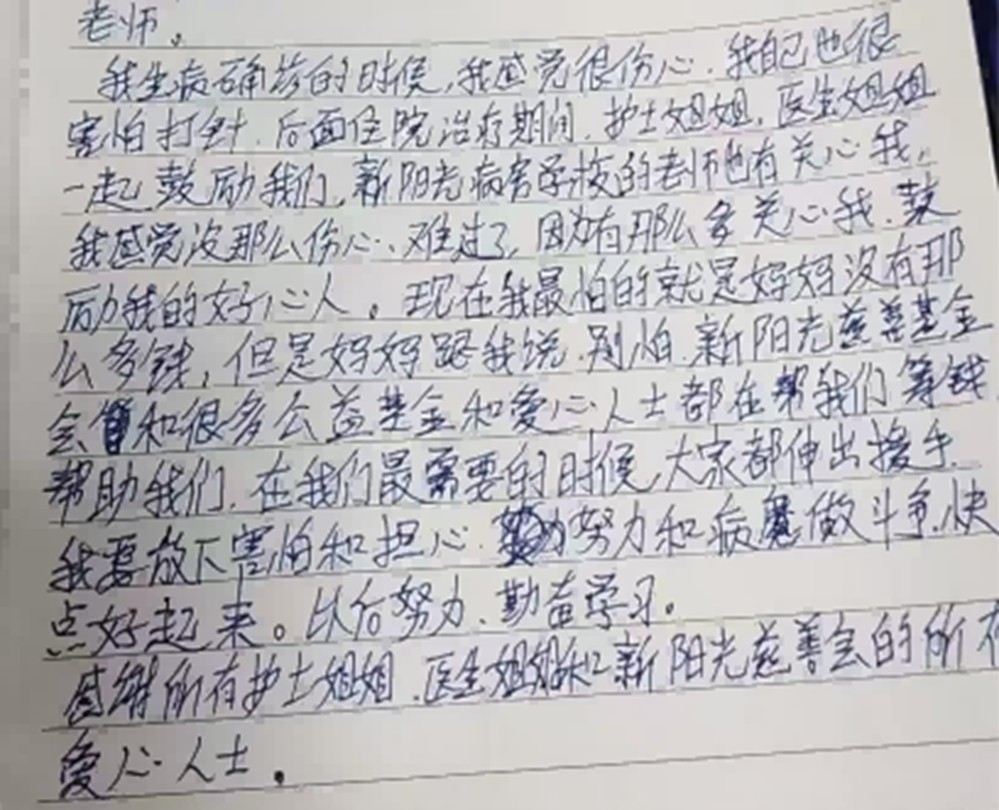 老师。
我生病确诊的时候,我感觉很伤心.我自己也很
害怕打针.后面住院治疗期间.护士姐姐.医生姐姐
一起鼓励我们,新阳光病房学校的老师也有关心我,
我感觉没那么伤心、难过了,因为有那么多关心我.鼓
励我的好心人。现在我最怕的就是妈妈没有那
么多钱,但是妈妈跟我说.别怕.新阳光慈善基金
会和很多公益基金和爱心人士都在帮我们筹钱
帮助我们.在我们最需要的时候,大家都伸出援手.
我要放下害怕和担心.努力和病魔做斗争.快
点好起来。以后努力、勤奋学习。
感谢所有护士姐姐.医生姐姐和新阳光慈善会的所有
爱心人士.